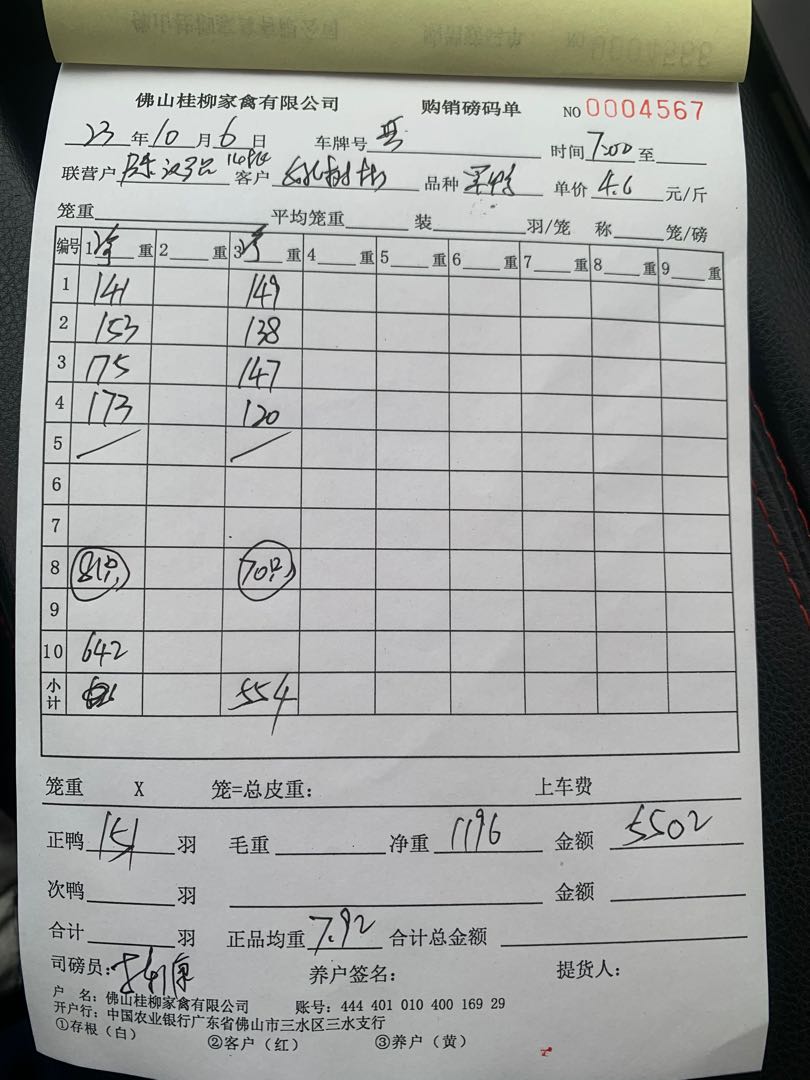 佛山桂柳家禽有限公司 购销磅码单 NO 0004567
23年10月6日 车牌号 时间7:00至
联营户 客户 品种 单价4.6元/斤
笼重 平均笼重 装 羽/笼 称 笼/磅
编号 1净重 2 重 3净重 4 重 5 重 6 重 7 重 8 重 9 重
1 141 149
2 153 138
3 175 147
4 173 120
5
6
7
8 81只 70只
9
10 642
小计 554
笼重 X 笼=总皮重: 上车费
正鸭151羽 毛重 净重1196 金额5502
次鸭 羽 金额
合计 羽 正品均重7.92 合计总金额
司磅员: 养户签名: 提货人:
户 名: 佛山桂柳家禽有限公司 账号: 444 401 010 400 169 29
开户行: 中国农业银行广东省佛山市三水区三水支行
①存根(白) ②客户(红) ③养户(黄)